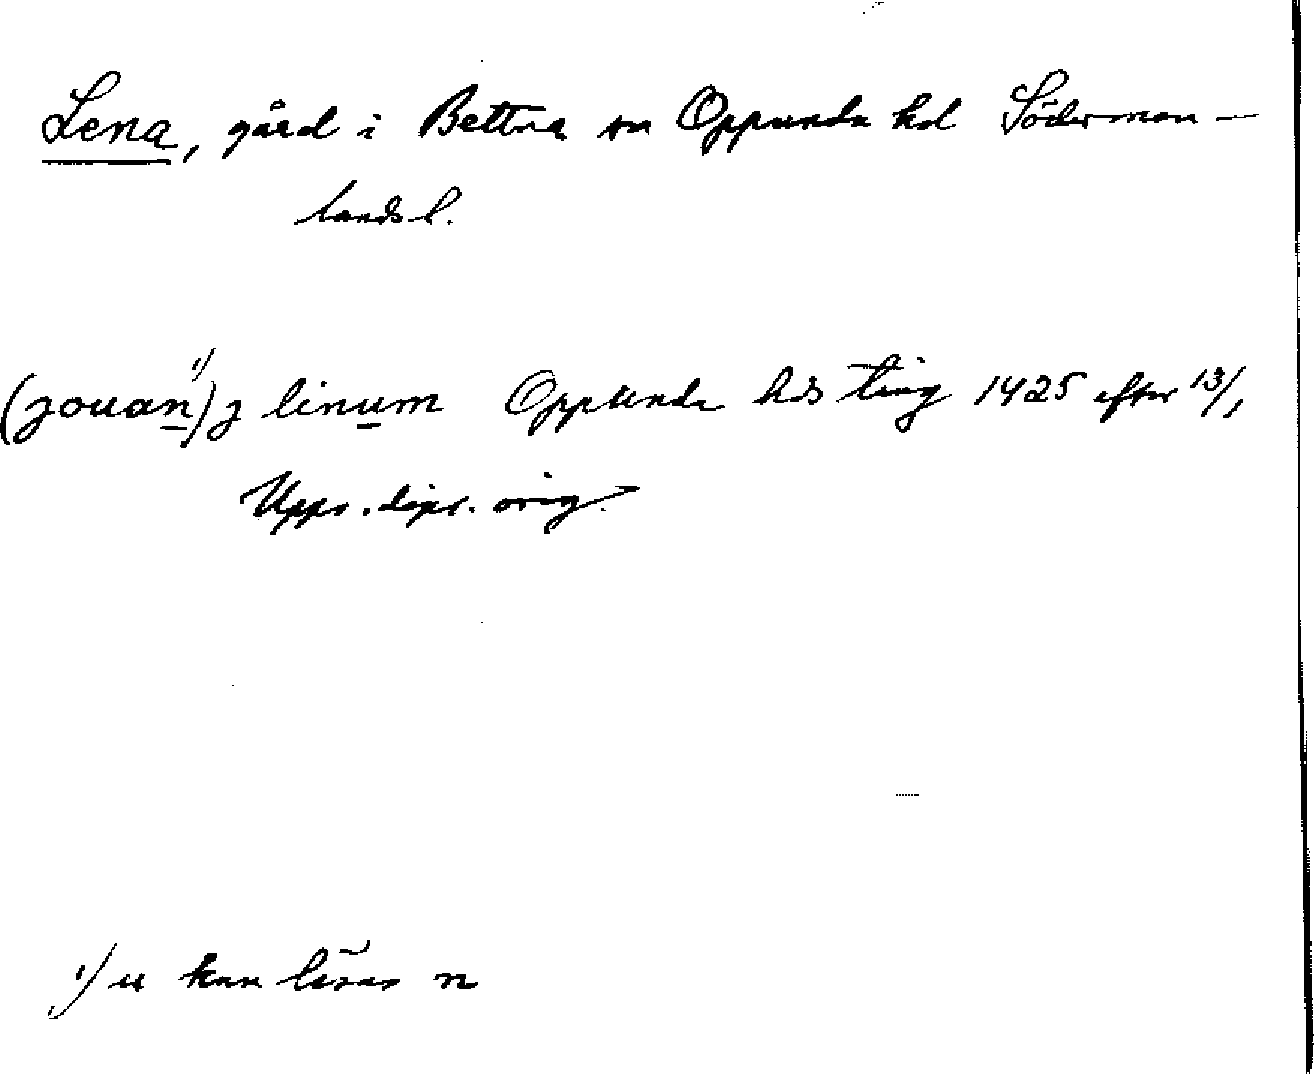 Lena, gård i Bettna sn Oppunda hd Söderman-
lands l.
(jouan¹⁾) j linum Oppunda hds ting 1425 efter 13/1
Upps. dipl. orig.
¹⁾ u kan läsas n